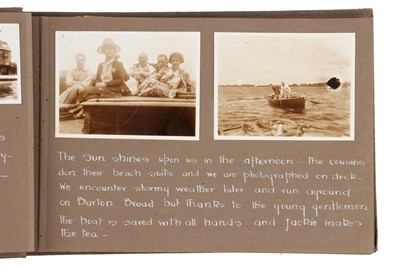 The sun shines upon us in the afternoon – the cousins
don their beach suits and we are photographed on deck –
We encounter stormy weather later and run aground
on Barton Broad but thanks to the young gentlemen
the boat is saved with all hands and Jackie makes
the tea –